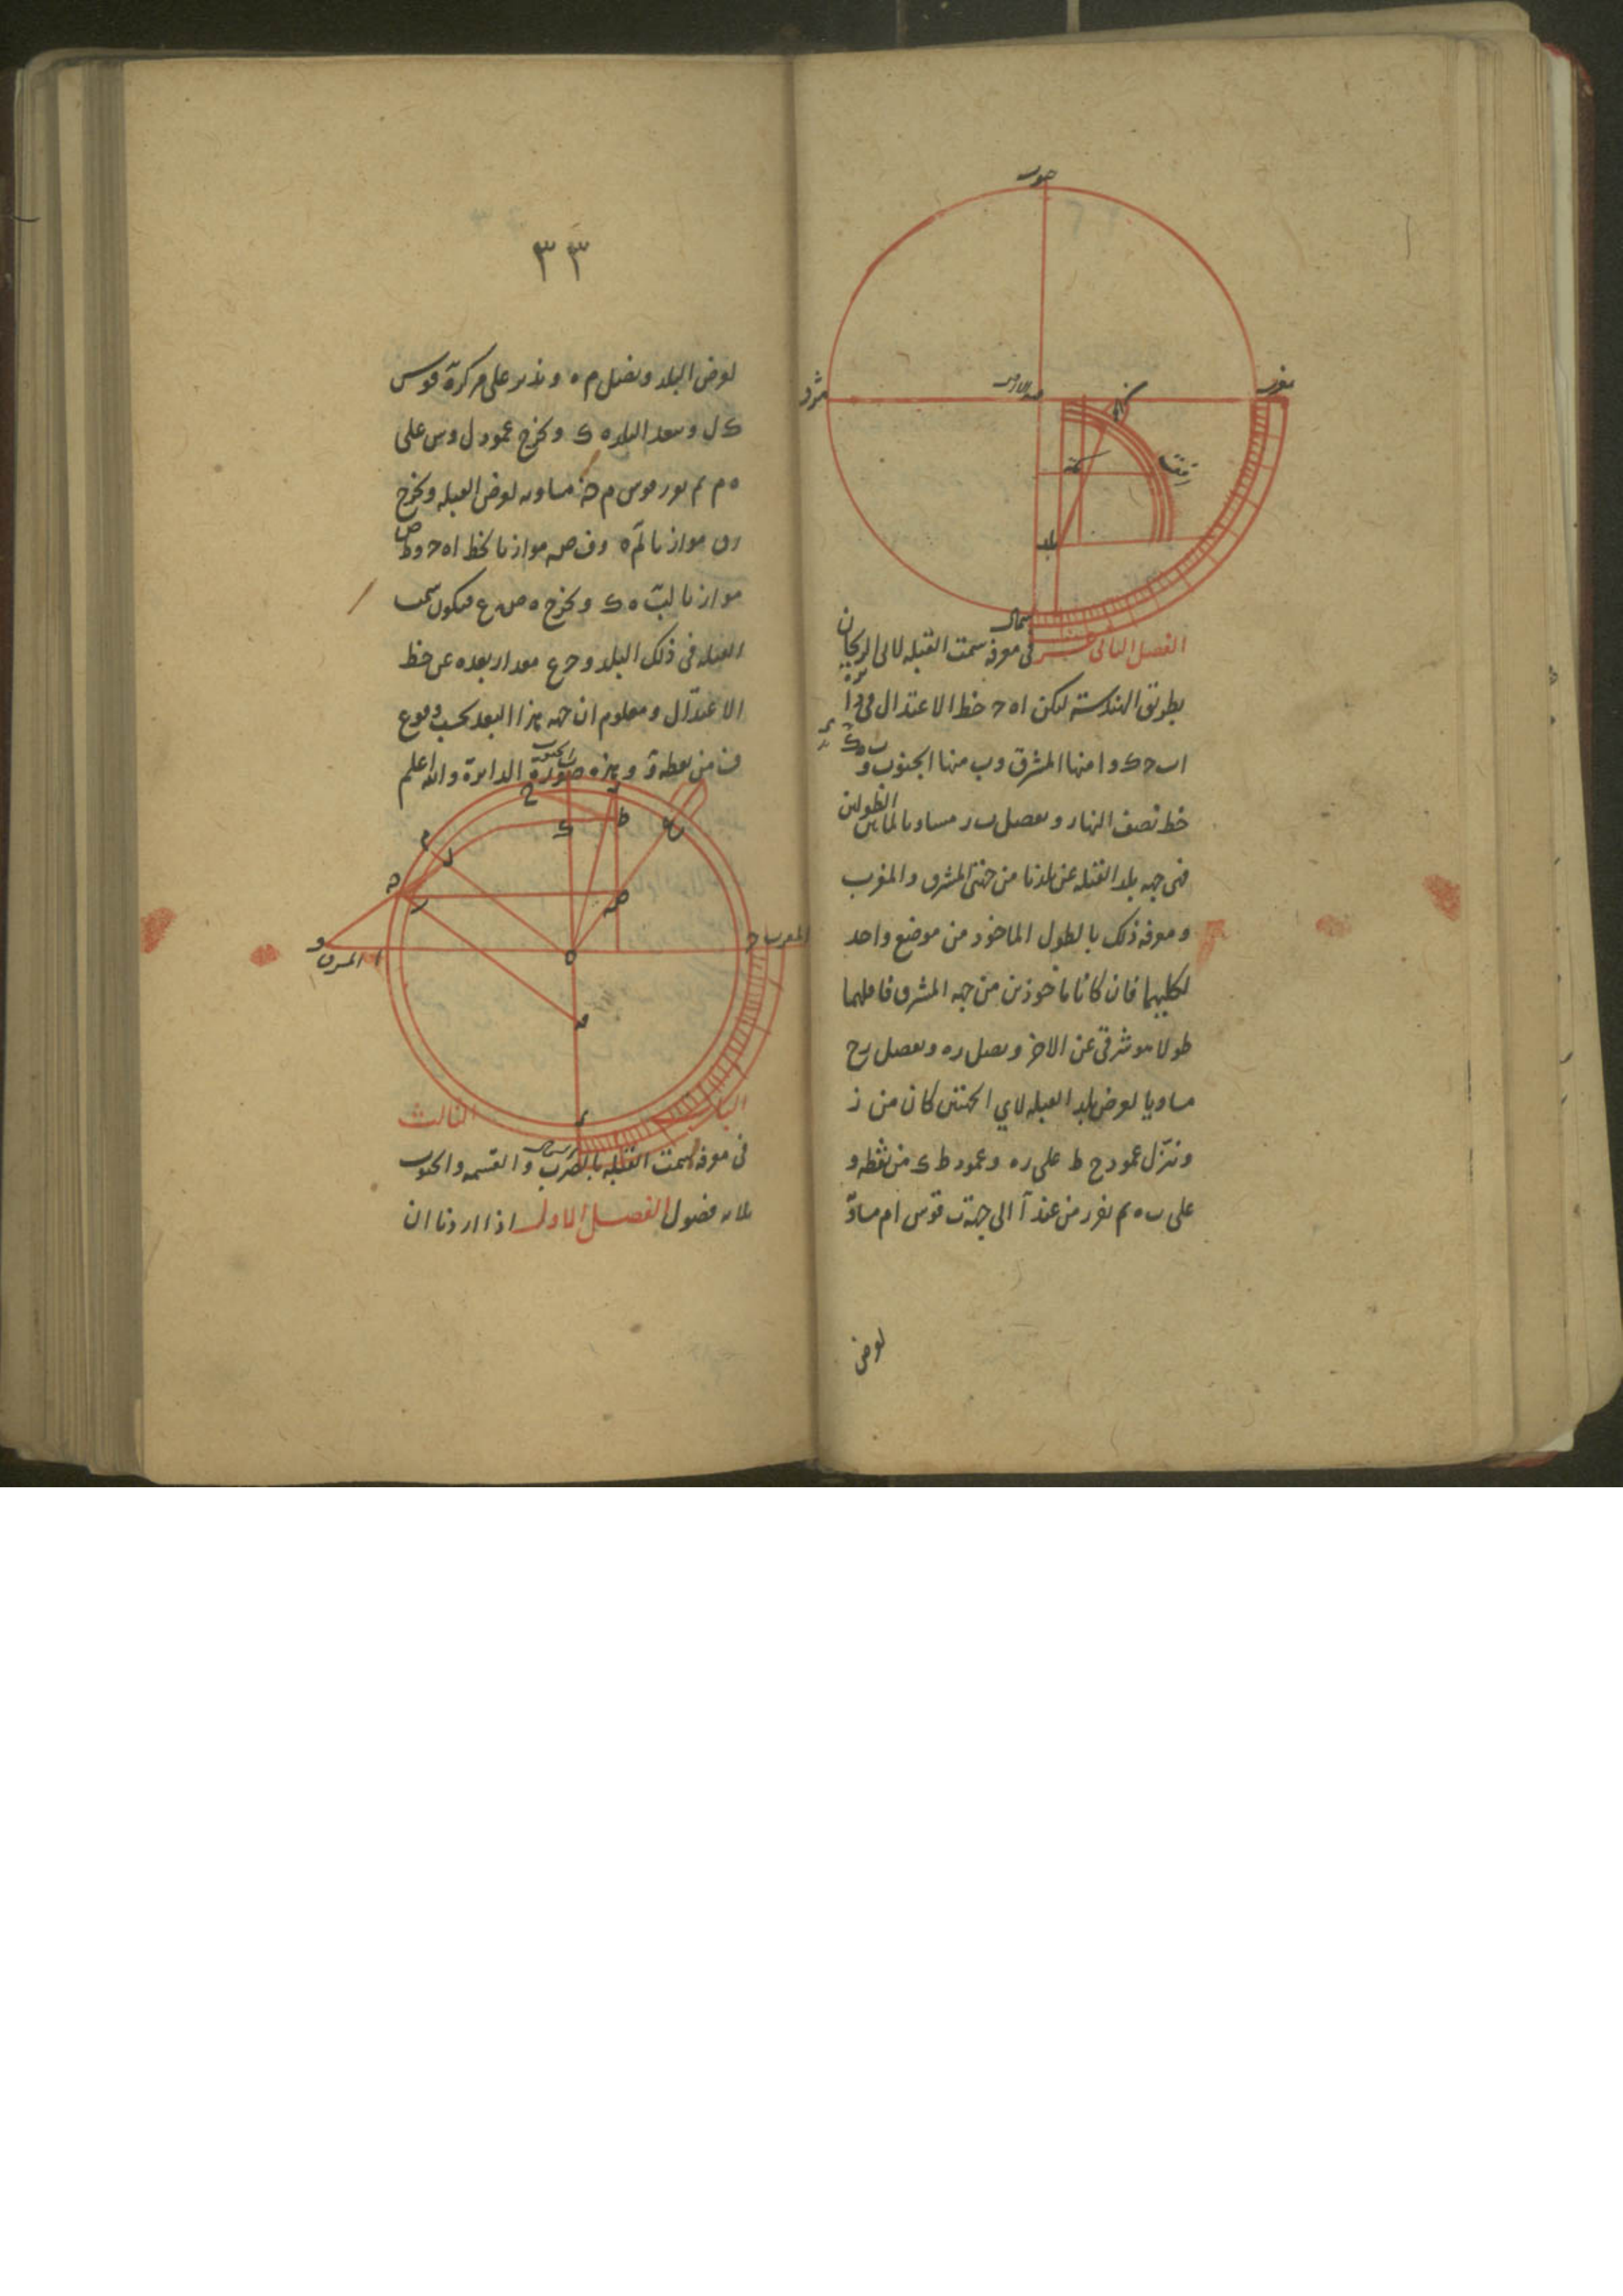 جنوب
مغرب
مشرق
بلد
شمال
الفصل الثانى عشر فى معرفة سمت القبله لابى الريحان
بطريق الهندسة ليكن ا ه ح خط الاعتدال فى دائرة
ا ب ح د و ا منها المشرق و ب منها الجنوب و ب ه د
خط نصف النهار و نفصل ب ر مساويا لما بين الطولين
فى جهه بلد القبله عن بلدنا من جهتى المشرق والمغرب
و معرفة ذلك بالطول الماخوذ من موضع واحد
لكليهما فان كانا ماخوذين من جهه المشرق فاقلهما
طولا هو شرقى عن الاخر و نصل ر ه و نفصل ر ح
مساويا لعرض بلد القبله لاي الجهتين كان من ر
و ننزل عمود ح ط على ر ه و عمود ط ك من نقطه
على ب ه ثم نفرز من عند ا الى جهة ب قوس ا م مساو
لعرض
٣٣
لعرض البلد و نصل م ه و ندير على مركز ه قوس
ك ل و ببعد ه ك و نخرج عمود ل و س على
ه م ثم نفرز قوس م مساويه لعرض القبله و نخرج
موازيا ل م ه و ف ص موازيا لخط ا ه ح و ط ص
موازيا ل ب ه د و نخرج ه ص ع فيكون سمت
القبله فى ذلك البلد و ح ع مقدار بعده عن خط
الاعتدال و معلوم ان جهه هذا البعد بحسب وقوع
ف من نقطة و هذه صورة الدايرة والله اعلم
الجنوب
المغرب ح
ا المشرق
الباب الثالث
فى معرفة سمت القبله بالضرب و القسمه و الجيوب
ثلاثه فصول الفصل الاول اذا اردنا ان